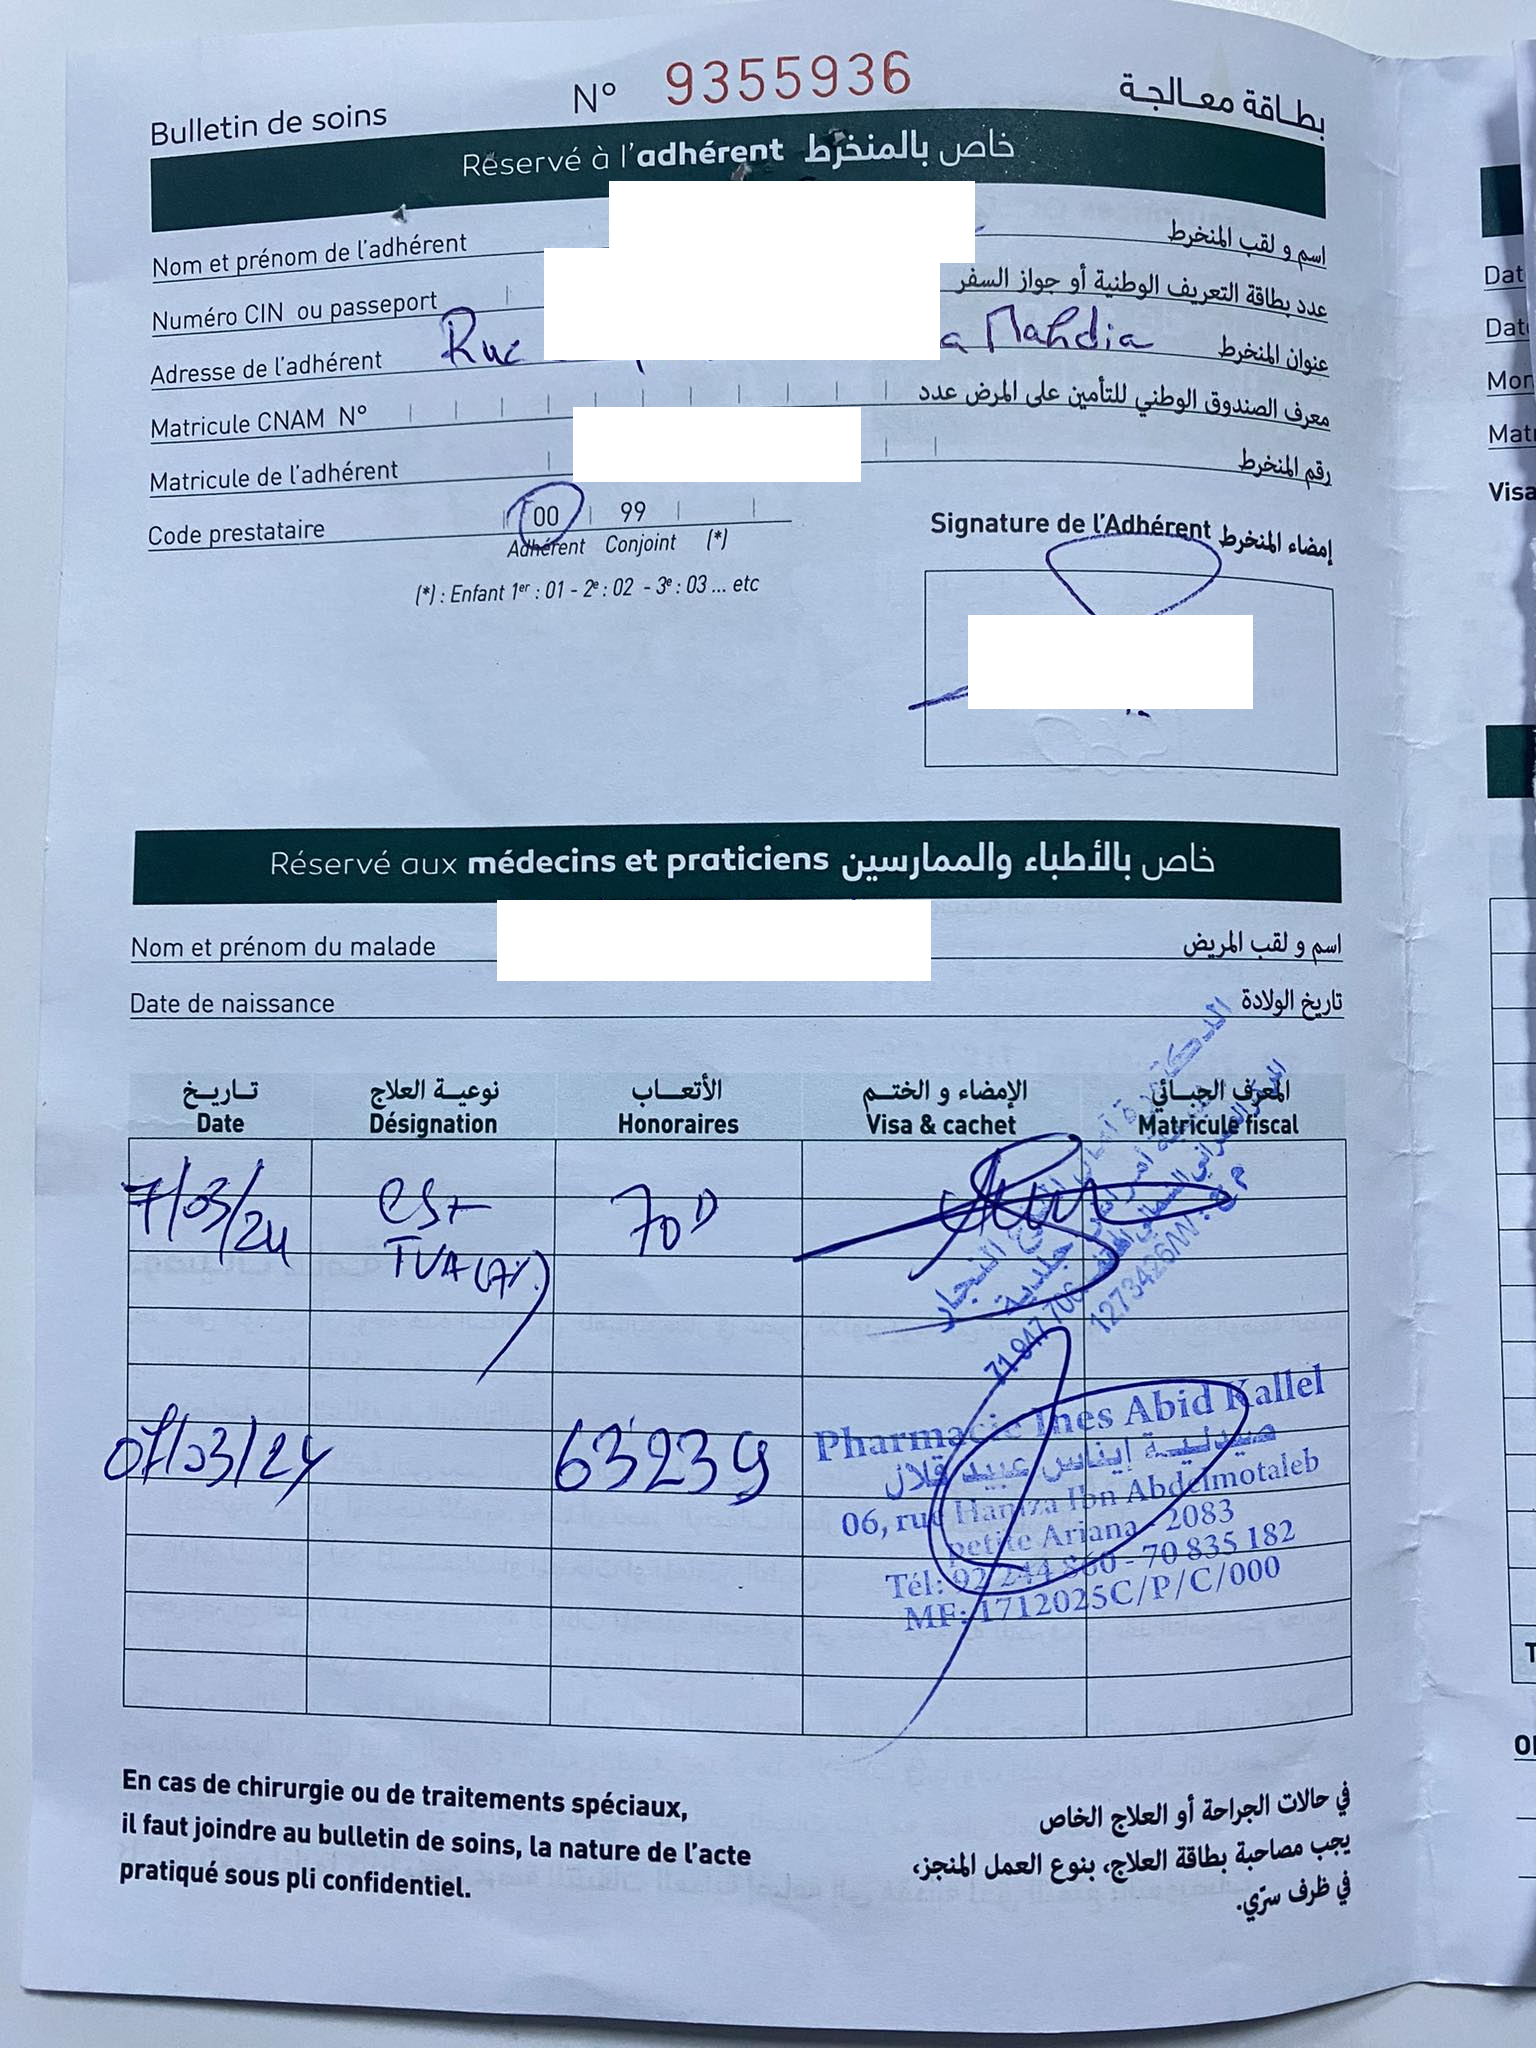 Bulletin de soins N° 9355936 بطاقة معالجة
Réservé à l'adhérent خاص بالمنخرط
Nom et prénom de l'adhérent اسم و لقب المنخرط
Numéro CIN ou passeport عدد بطاقة التعريف الوطنية أو جواز السفر
Adresse de l'adhérent Rue a Mahdia عنوان المنخرط
Matricule CNAM N° معرف الصندوق الوطني للتأمين على المرض عدد
Matricule de l'adhérent رقم المنخرط
Code prestataire 00 99
Adhérent Conjoint (*)
(*) : Enfant 1er : 01 - 2e : 02 - 3e : 03 ... etc
Signature de l'Adhérent إمضاء المنخرط
Réservé aux médecins et praticiens خاص بالأطباء والممارسين
Nom et prénom du malade اسم و لقب المريض
Date de naissance تاريخ الولادة
تاريخ نوعية العلاج الأتعاب الإمضاء و الختم المعرف الجبائي
Date Désignation Honoraires Visa & cachet Matricule fiscal
7/03/24 70D
TVA (7%)
النجار
جلدية
71 947 706
1273426/W
07/03/24 63239
Pharmacie Ines Abid Kallel
صيدلية إيناس عبيد قلال
06, rue Hamza Ibn Abdelmotaleb
petite Ariana - 2083
Tél: 92 244 860 - 70 835 182
MF: 1712025C/P/C/000
En cas de chirurgie ou de traitements spéciaux,
il faut joindre au bulletin de soins, la nature de l'acte
pratiqué sous pli confidentiel.
في حالات الجراحة أو العلاج الخاص
يجب مصاحبة بطاقة العلاج، بنوع العمل المنجز،
في ظرف سرّي.
Visa